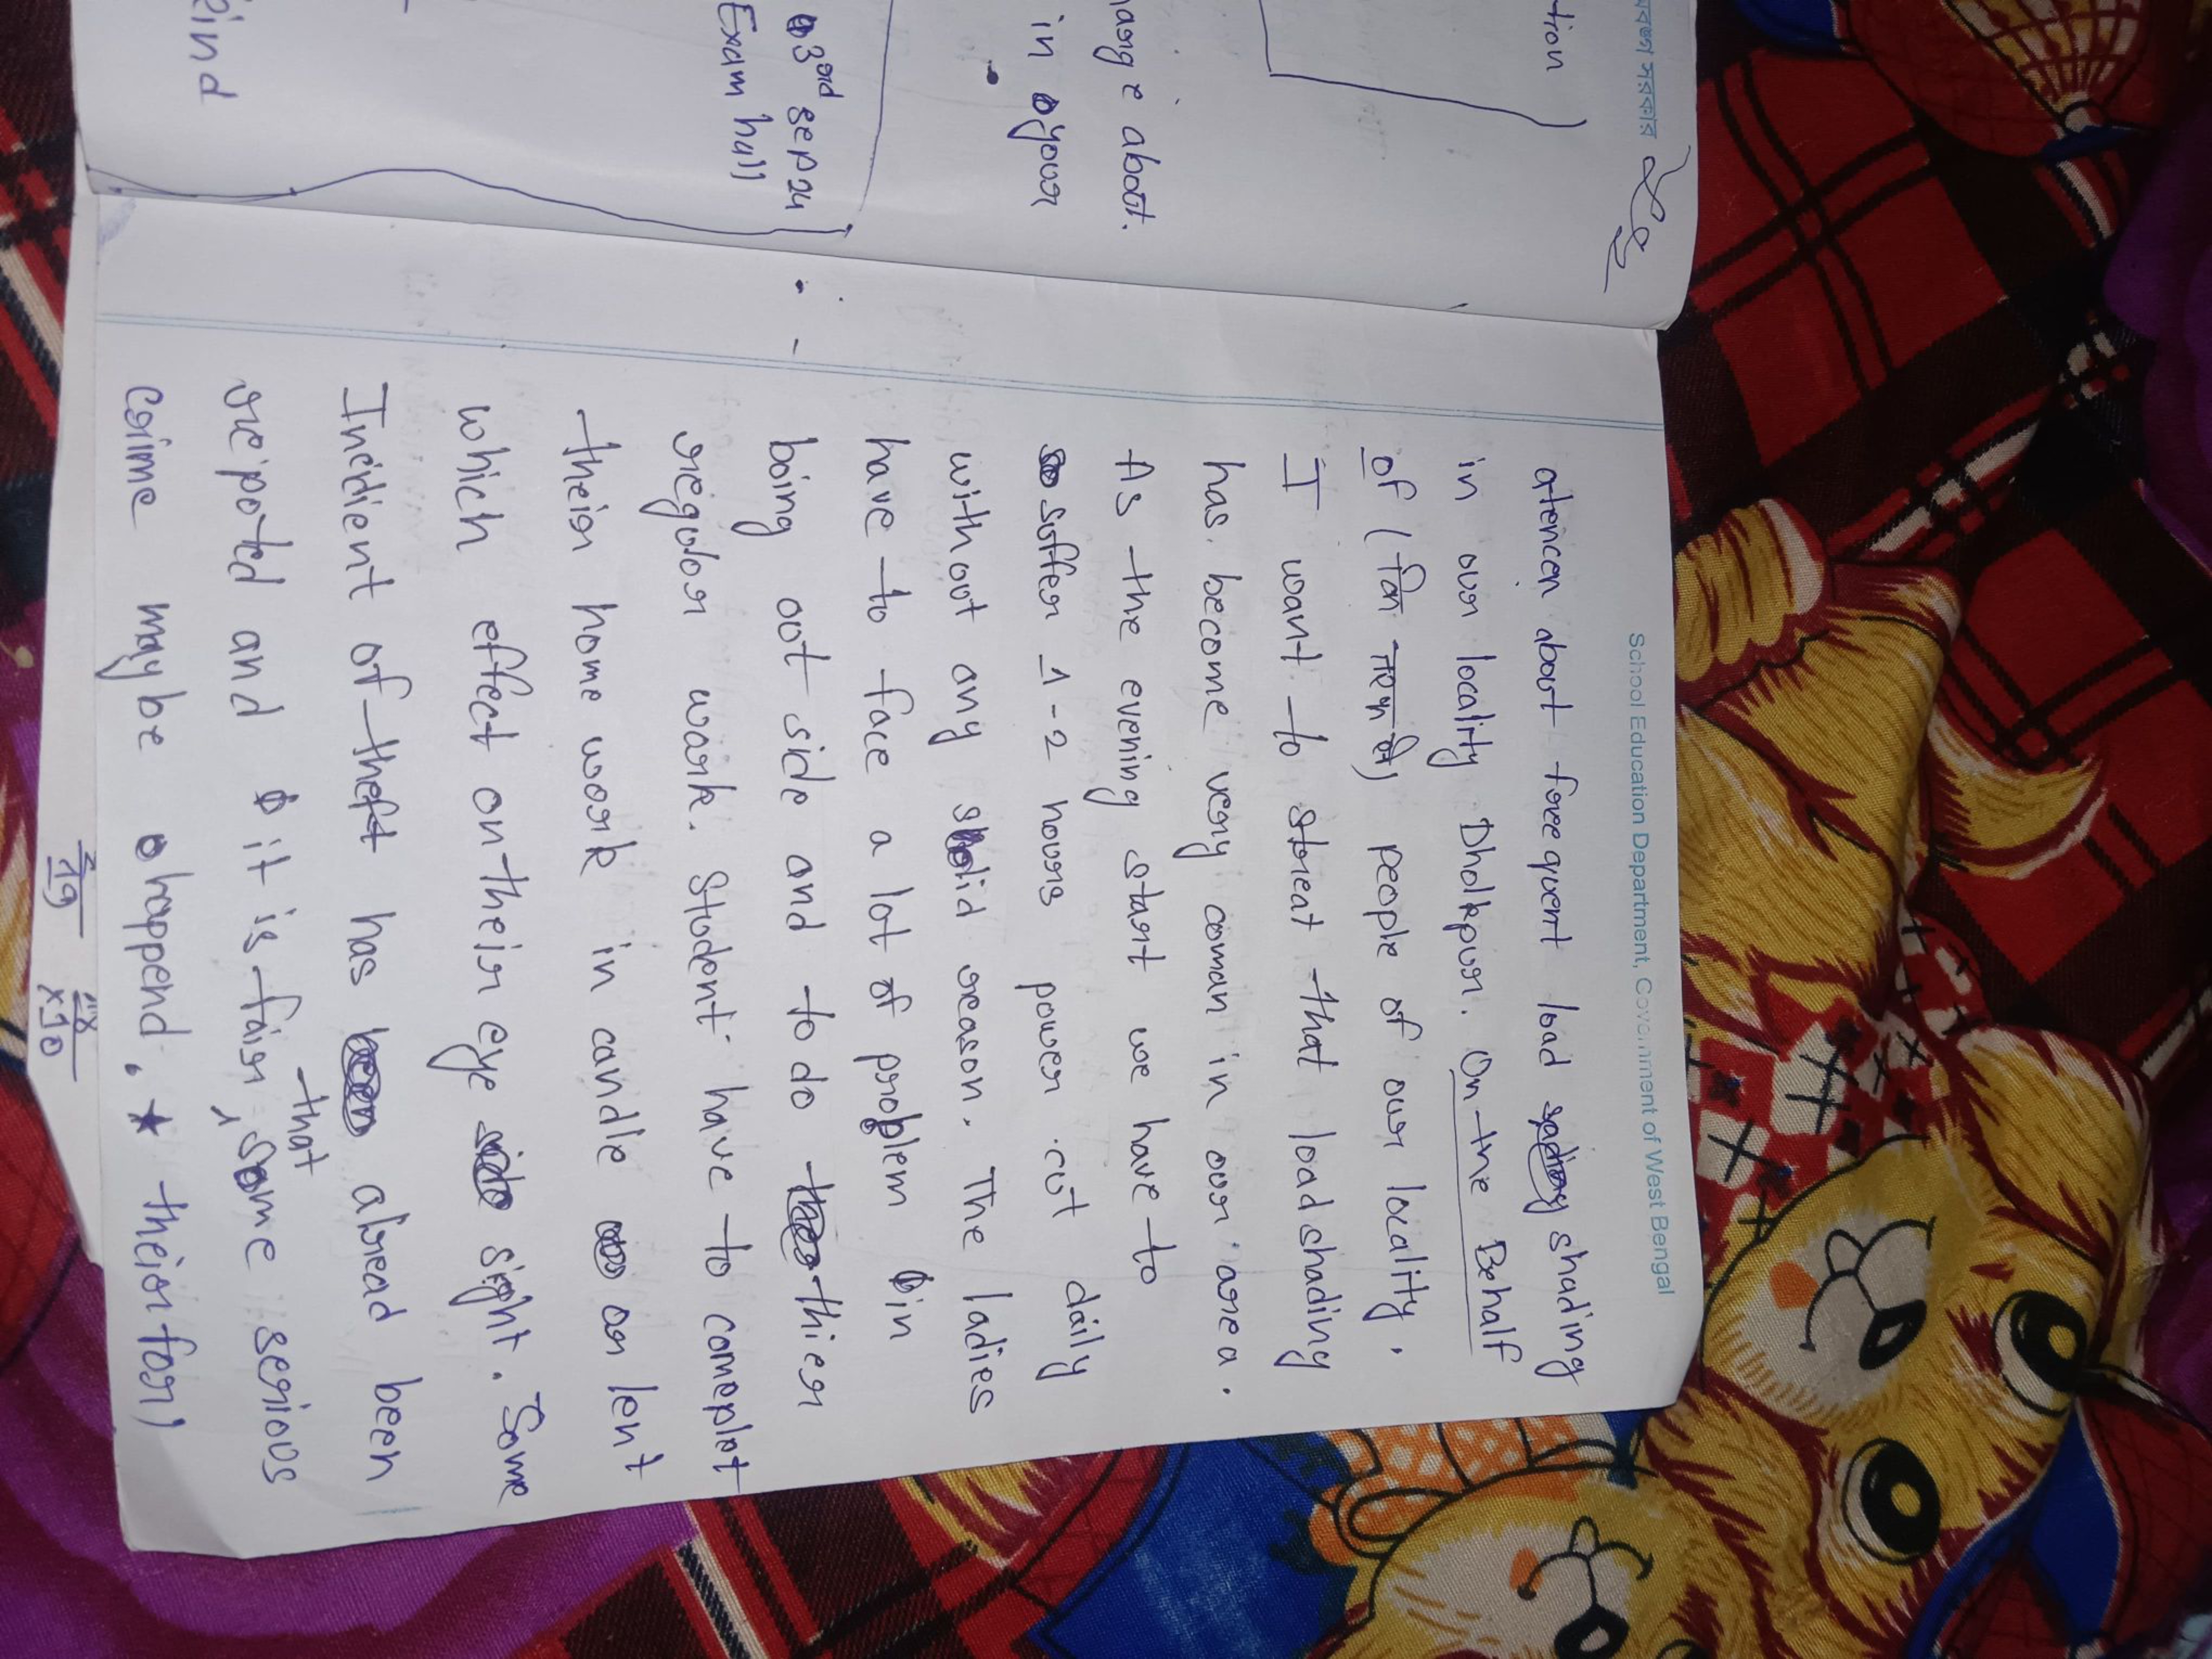 বঙ্গ সরকার
tion
arge about.
in your
3rd sep 24
Exam hall
eind
School Education Department, Government of West Bengal
atencen about freequent load shading
in our locality Dholkpur. On the Behalf
of (for ) people of our locality.
I want to streat that load shading
has become very coman in our area.
As the evening start we have to
suffer 1-2 hours power cut daily
with out any solid reason. The ladies
have to face a lot of problem in
boing out side and to do thier
regular wark. Student have to complot
their home work in candle or lent
which effect on their eye sight. Some
Incdient of theft has alread been
repoted and it is fair, that some serious
crime may be happend. * their for)
219
x10